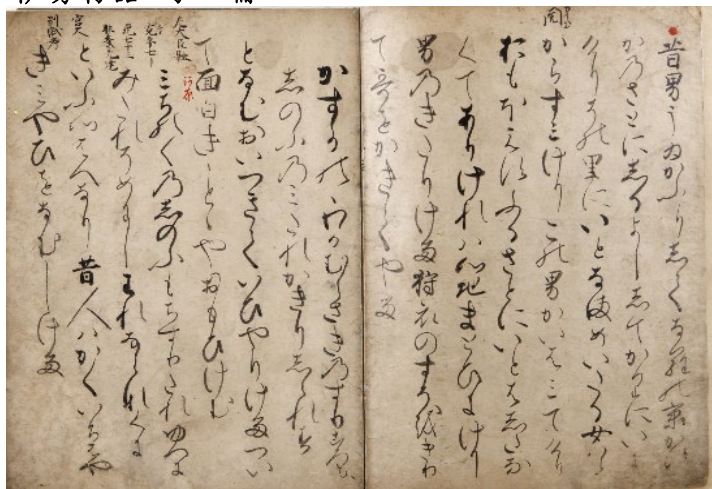 昔男うゐかふりしてなら能京かす
か乃さとにしるよしゝてかりにい
けりその里にいとなまめいたる女はら
からすミけりこの男かいまミてけり
おもほえすふるさとにいとはしたな
くてありけれハ心地まとひにけり
男乃きたりける狩衣のすそをきり
て哥をかきてやる
かすかのゝわかむらさき乃すり衣
しのふ乃ミたれかきりしられす
となむおいつきていひやりけるつい
て面白きことゝやおもひけむ
ミちのく乃しのふもちすりたれゆへに
みたれそめにしわれならなくに
といふ心はへなり昔人ハかくいちはや
きミやひをなむしける